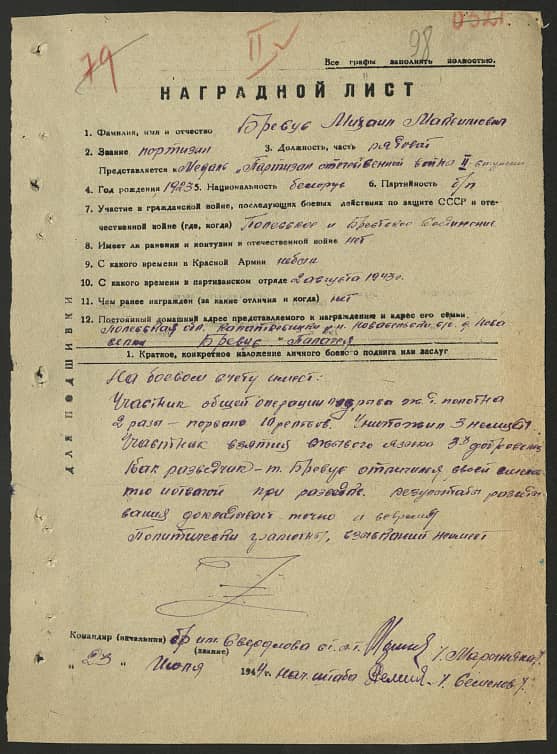 79
II
98
0321
Все графы заполнять полностью.
НАГРАДНОЙ ЛИСТ
1. Фамилия, имя и отчество Бревус Михаил Максимович
2. Звание партизан 3. Должность, часть рядовой
Представляется „Медаль „Партизан отечественной война II ступени
4. Год рождения 1923 5. Национальность белорус 6. Партийность б/п
7. Участие в гражданской войне, последующих боевых действиях по защите СССР и оте-
чественной войне (где, когда) Полесское и Брестское
8. Имеет ли ранения и контузии в отечественной войне нет
9. С какого времени в Красной Армии небыл
10. С какого времени в партизанском отряде 2 августа 1943 г.
11. Чем ранее награжден (за какие отличия и когда) нет
12. Постоянный домашний адрес представляемого к награждению и адрес его семьи
обл. р-н. д. Нова
Бревус
1. Краткое, конкретное изложение личного боевого подвига или заслуг
На боевом счету имеет:
Участник общей операции подрыва ж.д. полотна
2 раза – порвано 10 рельсов. Уничтожил 3 немцев
Участник взятия языка
Как разведчик – т. Бревус отличился своей
при разведке. Результаты
докладывал точно и вовремя
Политически грамотен, взысканий не имеет
ДЛЯ ПОДШИВКИ
Командир (начальник) бр им. Свердлова ст. л-т
(звание)
„ 23 „ июля 1944 г. нач. штаба /Семенов/